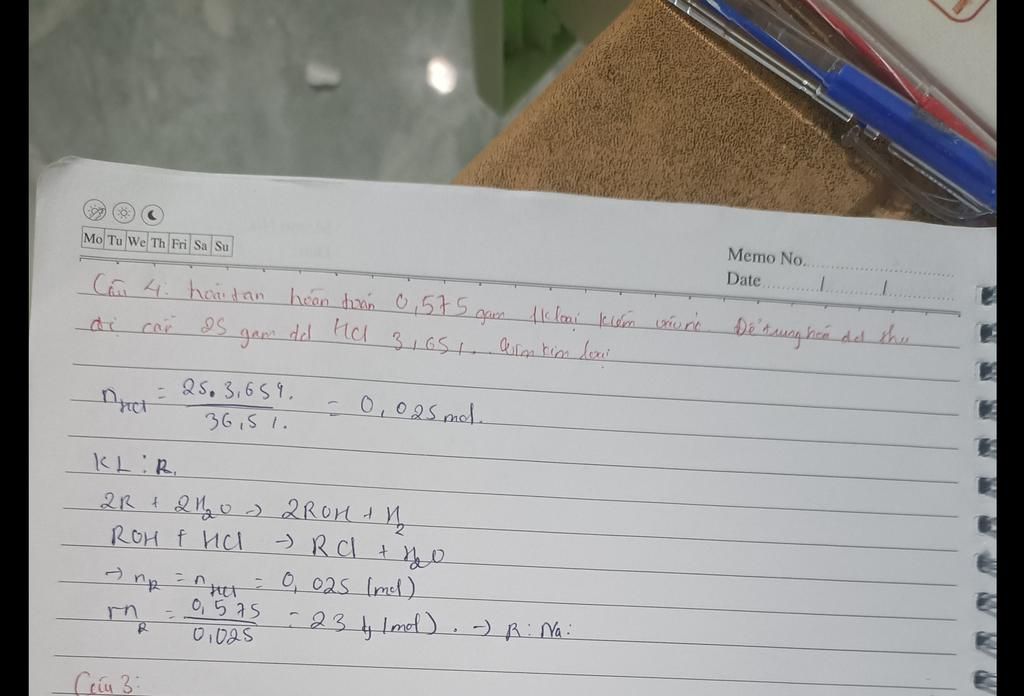 Mo Tu We Th Fri Sa Su
Memo No.
Date / /
Câu 4: hoà tan hoàn toàn 0,575 gam 1 kloại kiềm vào nc. Để trung hoà dd thu
đc cần 25 gam dd HCl 3,65%. tìm kim loại
nHCl = 25.3,65%. / 36,5%. = 0,025 mol.
KL: R.
2R + 2H₂O → 2ROH + H₂
ROH + HCl → RCl + H₂O
→ nR = nHCl = 0,025 (mol)
mR = 0,575 / 0,025 = 23 g (mol). → R: Na:
Câu 3: